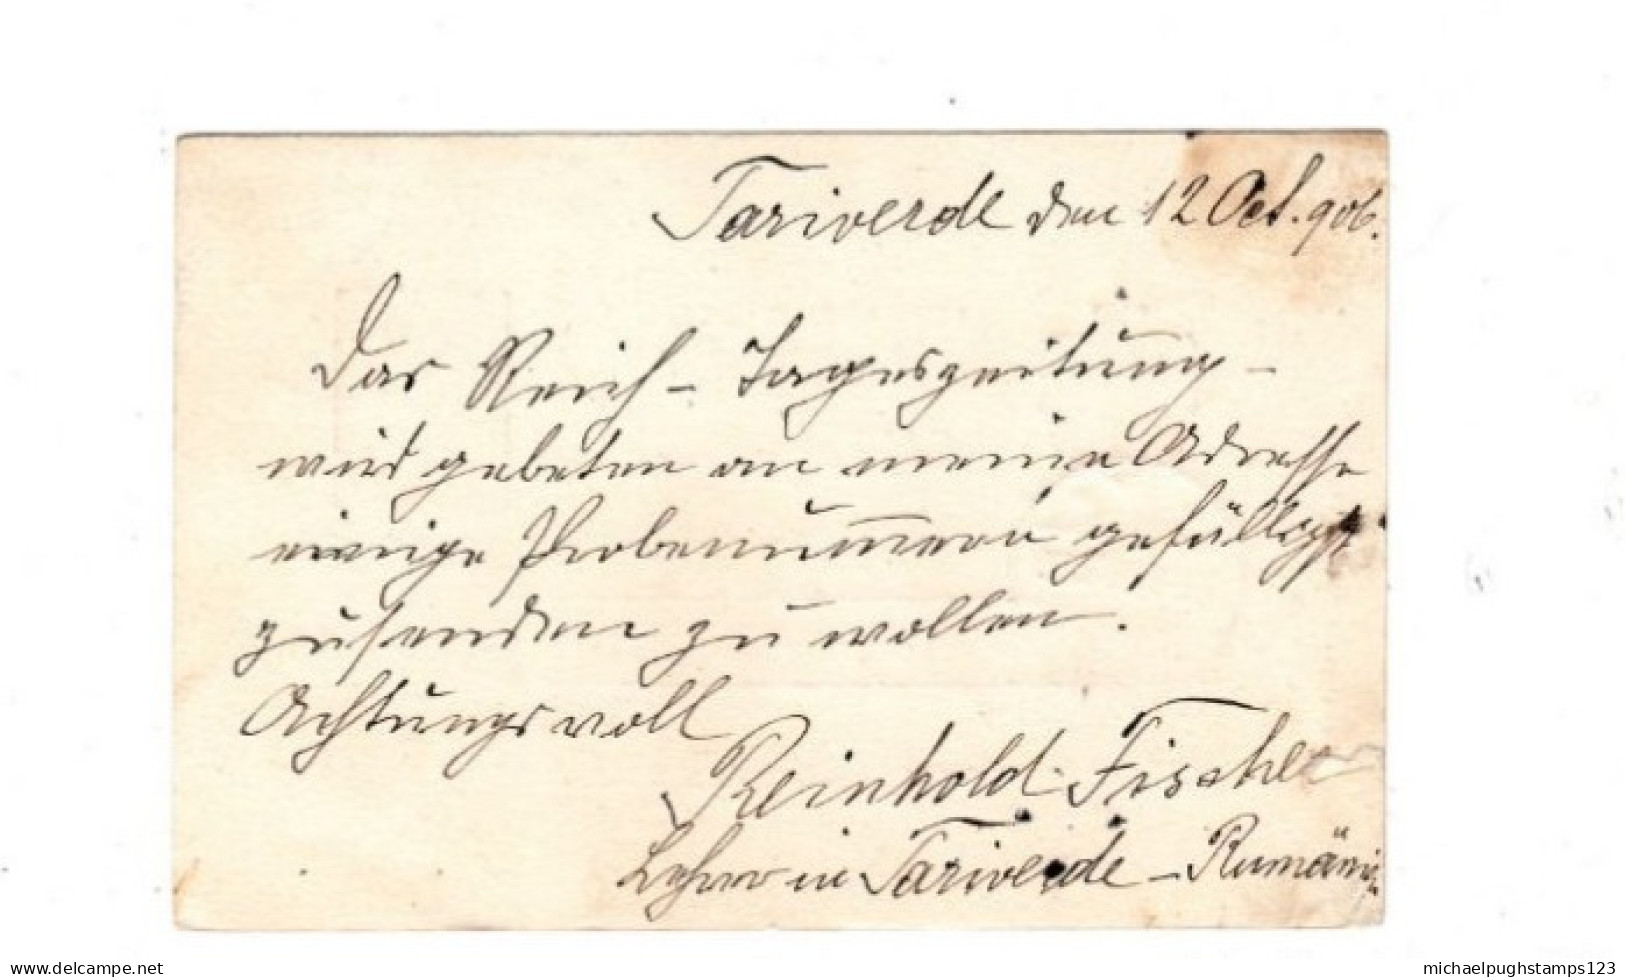 Tariverde den 12 Oct. 906.
Das Reich - Tageszeitung -
wird gebeten an meine Adresse
einige Probenum̅ern gefälligst
zusenden zu wollen.
Achtungsvoll
Reinhold Fischer
Lehrer in Tariverde - Rumänien
michaelpughstamps123
www.delcampe.net